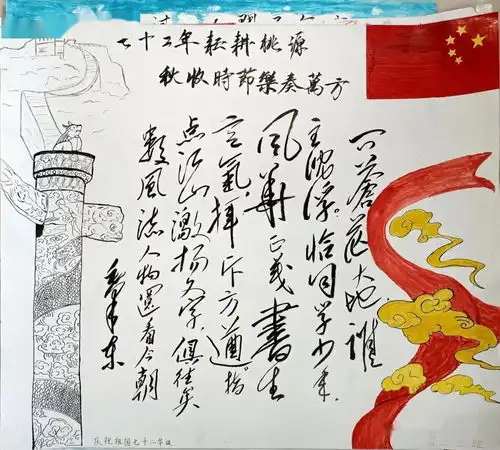 七十二年耘耕桃源
秋收時節樂奏萬方
问蒼茫大地,誰
主沉浮。恰同学少年,
风華正茂書生
意氣,揮斥方遒。指
点江山激扬文字。俱往矣
數風流人物還看今朝
毛泽东
庆祝祖国七十二华诞